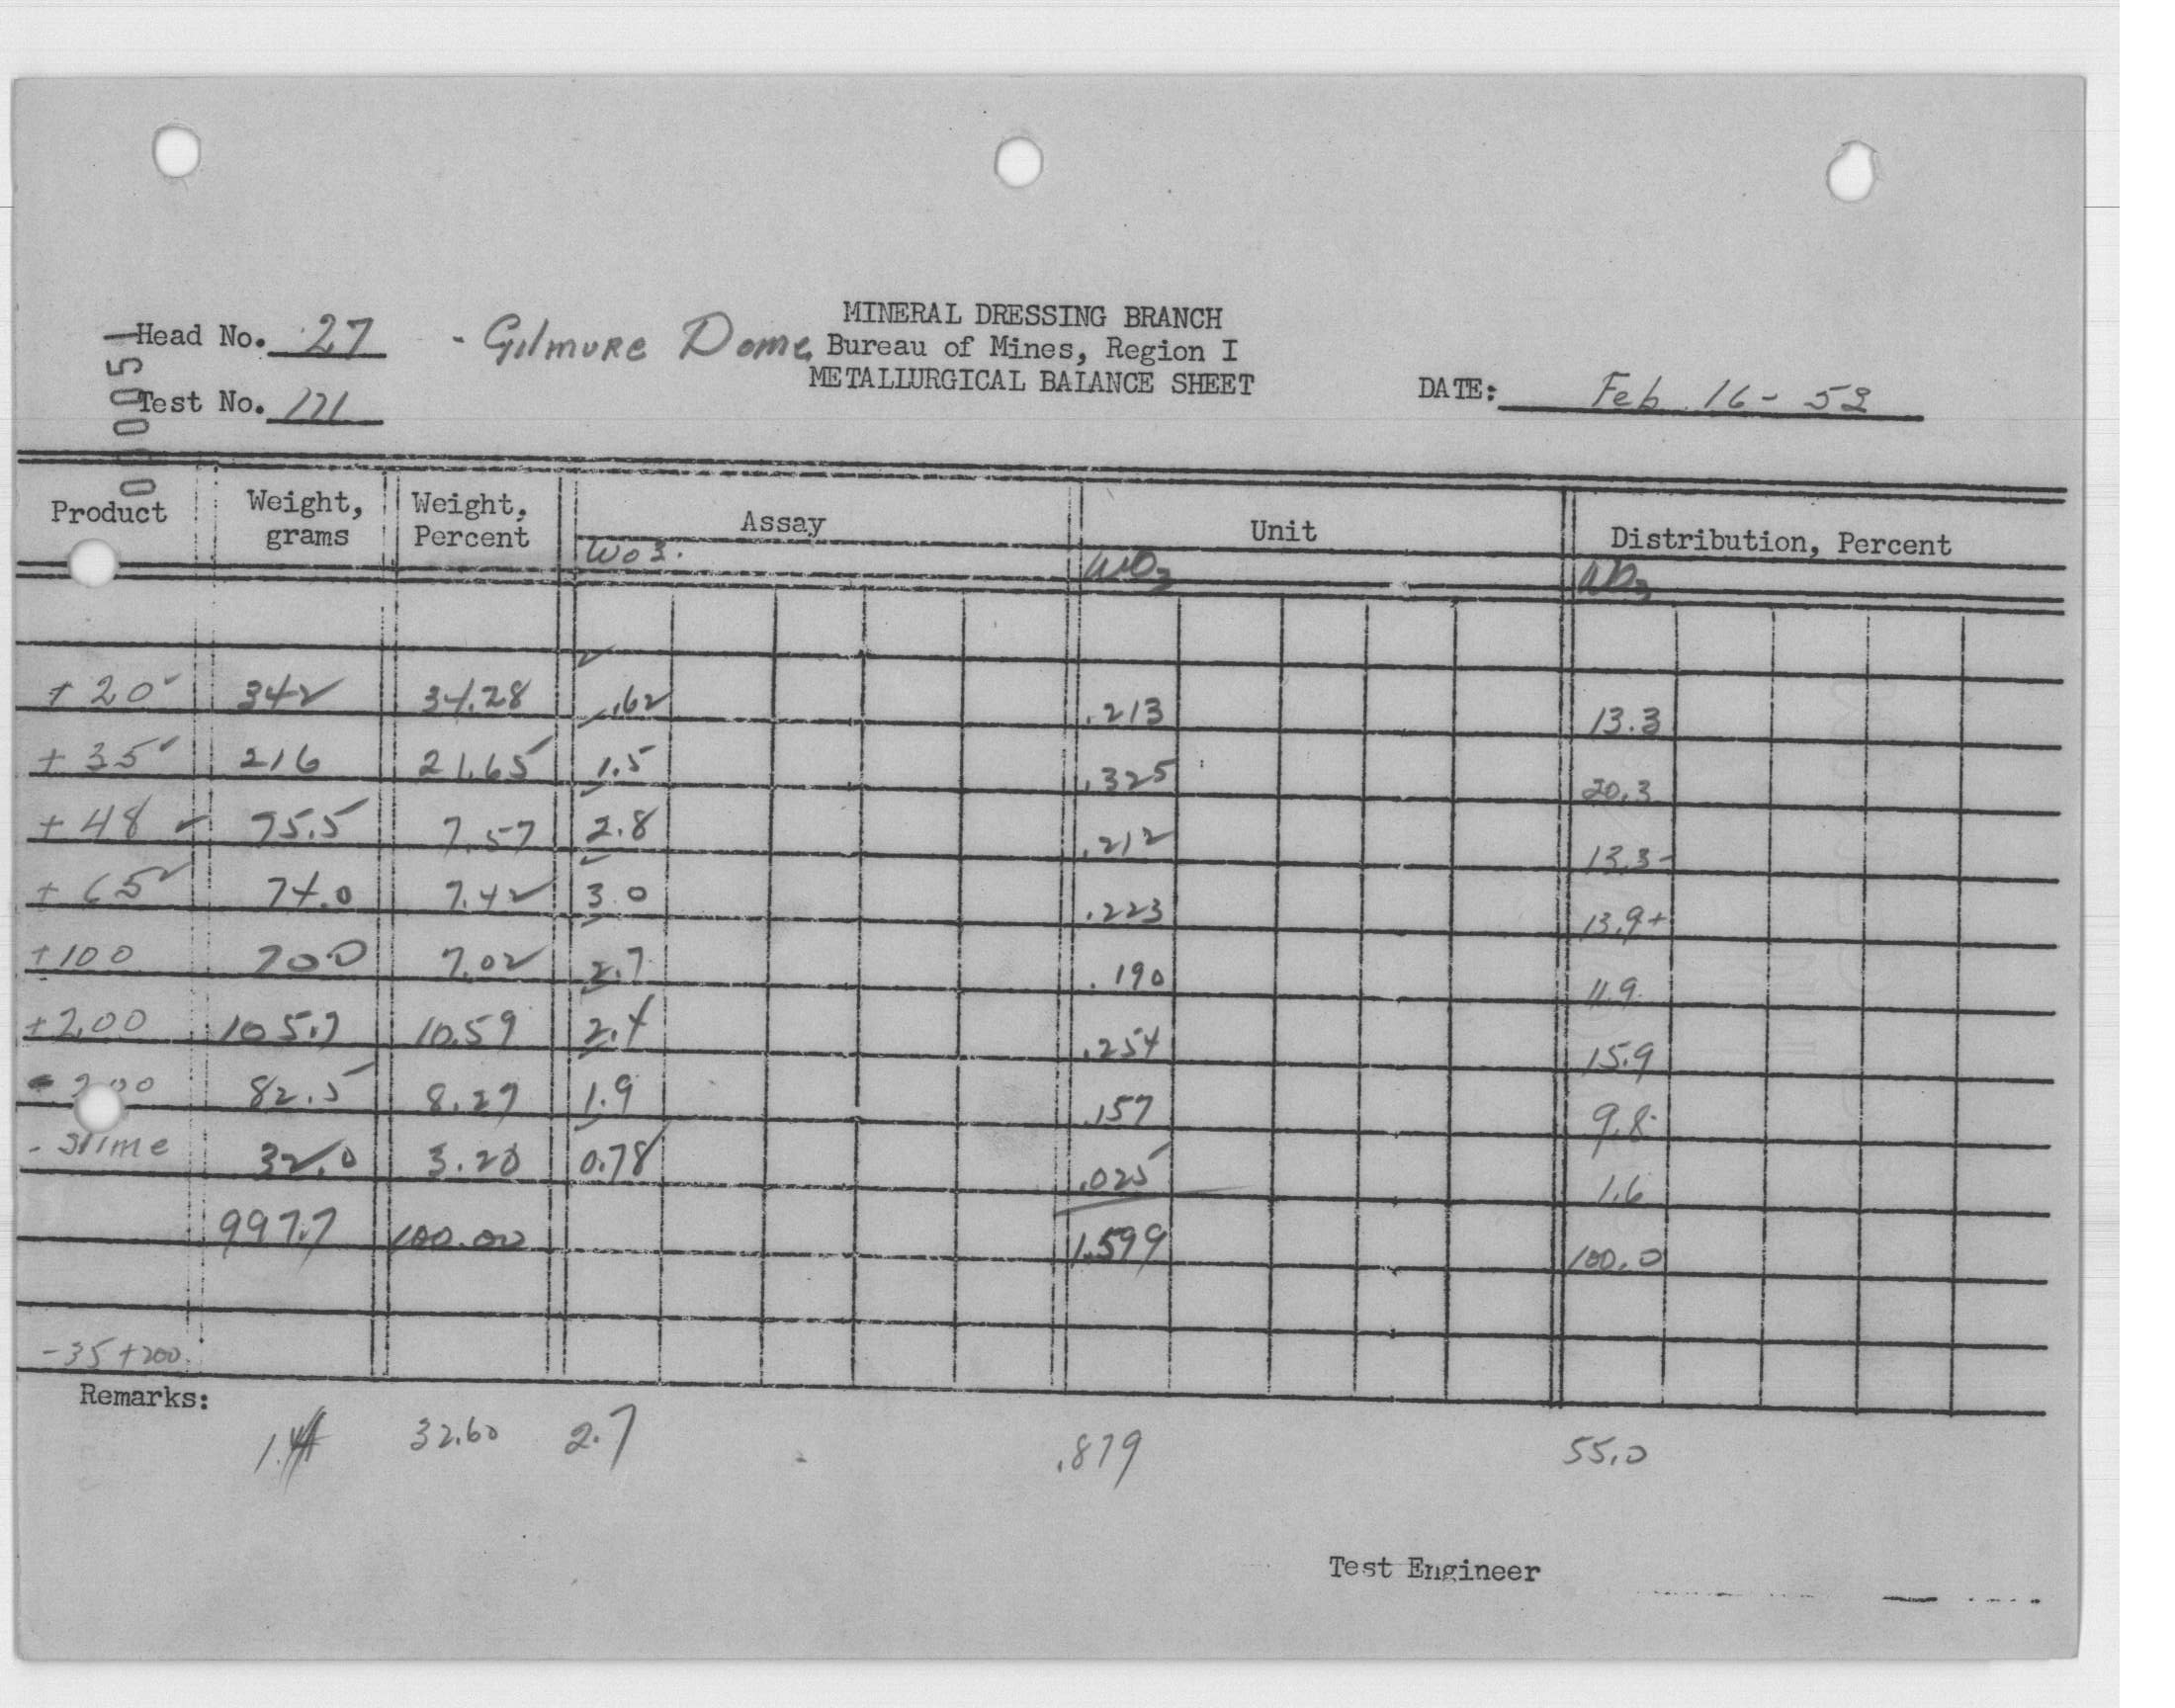 MINERAL DRESSING BRANCH
Head No. 27 - Gilmore Dome Bureau of Mines, Region I
METALLURGICAL BALANCE SHEET
Test No. 171 DATE: Feb 16-53
000051
Product Weight, grams Weight, Percent Assay Unit Distribution, Percent
WO3. WO3 WO3
+20 342 34.28 .62 .213 13.3
+35 216 21.65 1.5 .325 20.3
+48 75.5 7.57 2.8 .212 13.3-
+65 74.0 7.42 3.0 .223 13.9+
+100 70.0 7.02 2.7 .190 11.9
+200 105.7 10.59 2.4 .254 15.9
-200 82.5 8.27 1.9 .157 9.8
- Slime 32.0 3.20 0.78 .025 1.6
997.7 100.00 1.599 100.0
-35 +200
Remarks:
32.60 2.7 .879 55.0
Test Engineer